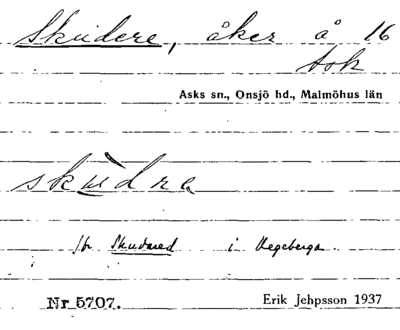 Skudere, åker å 16
tok
Asks sn., Onsjö hd., Malmöhus län
skùdra
Skudared i Hegeberga
Nr 5707.
Erik Jehpsson 1937